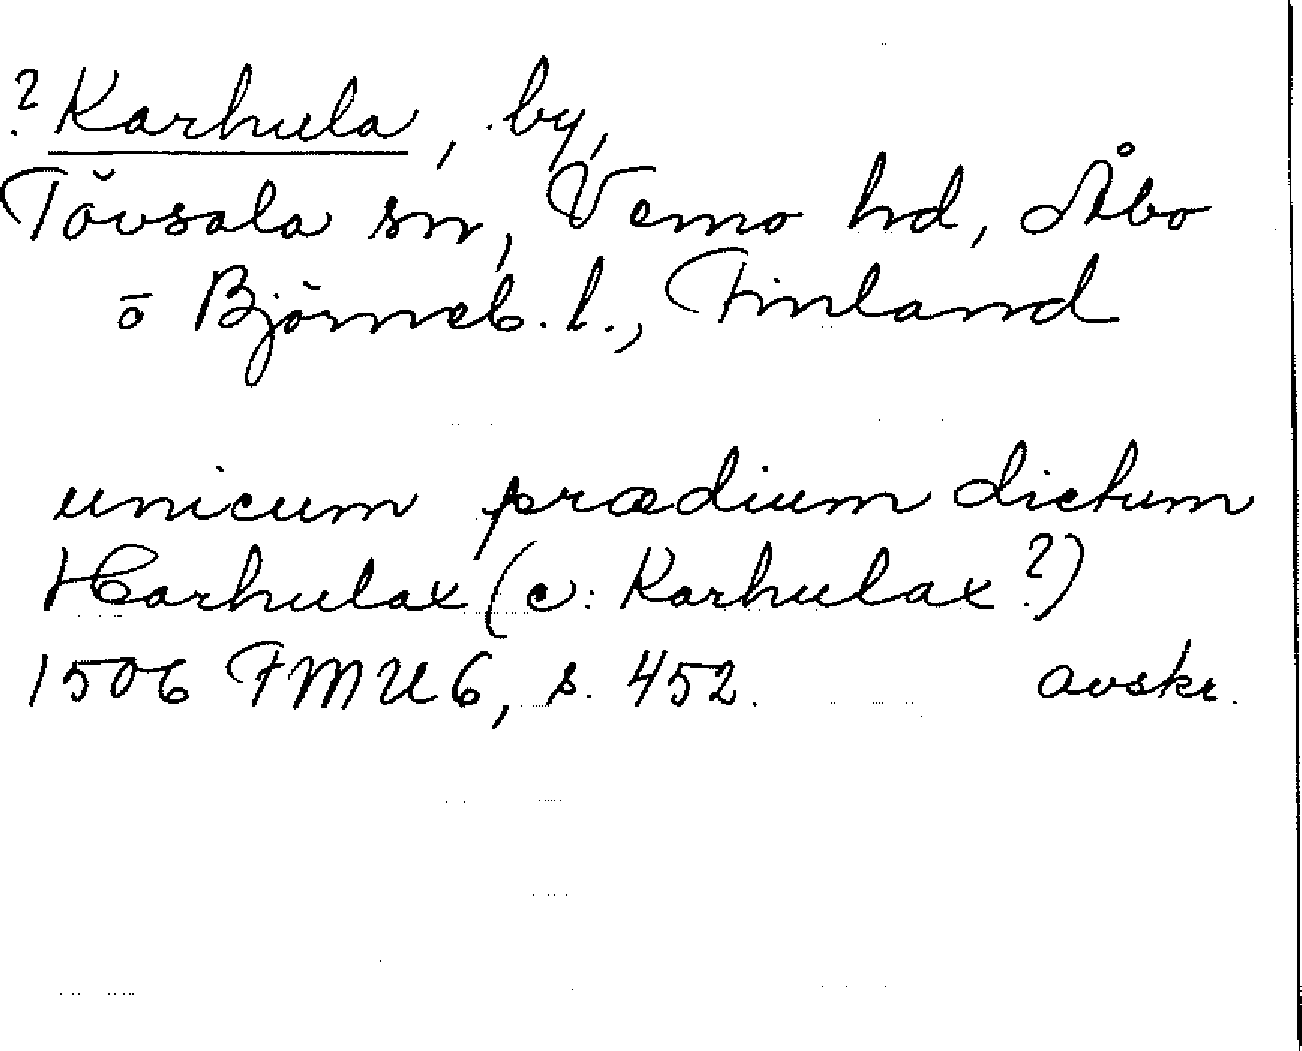 ? Karhula, by,
Tövsala sn, Vemo hd, Åbo
o̅ Björneb. l., Finland
unicum prædium dictum
Harhulax (ɔ: Karhulax?)
1506 FMU 6, s. 452. avskr.